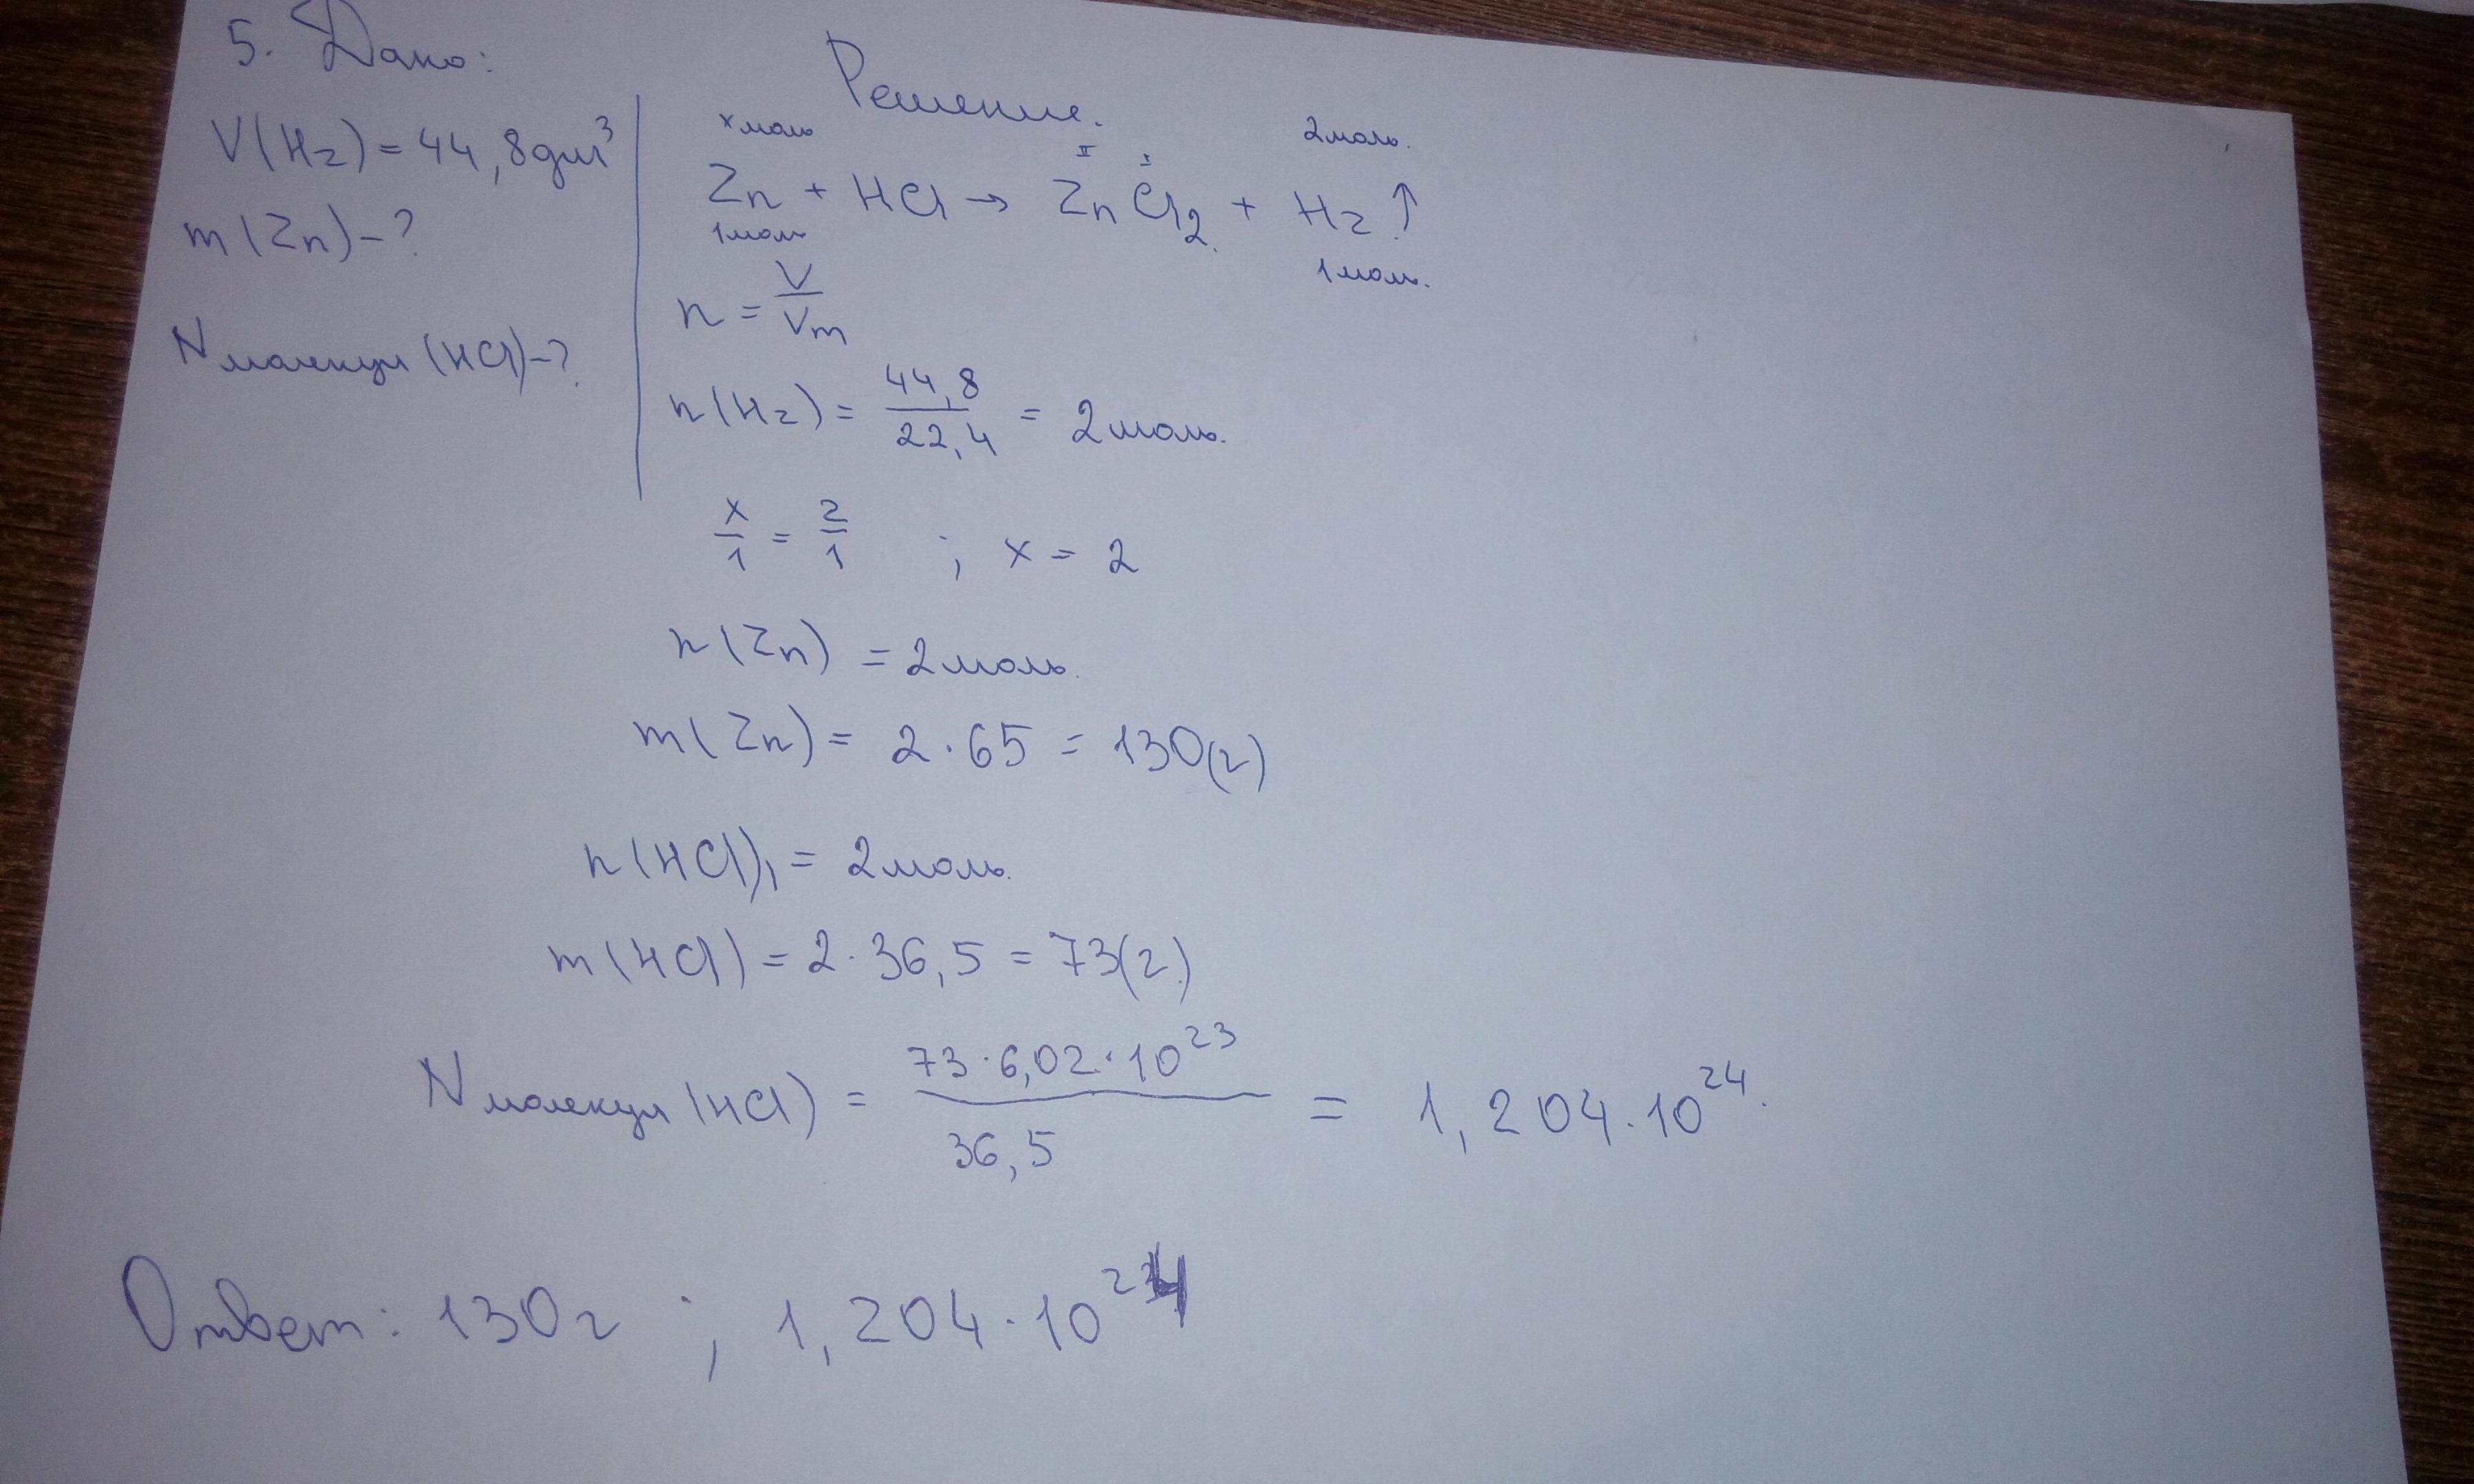 5. Дано:
V(H2) = 44,8 дм³
m(Zn) - ?
N молекул (HCl) - ?
Решение.
x моль 2 моль.
II I
Zn + HCl → ZnCl2 + H2↑
1 моль 1 моль.
n = V/Vm
n(H2) = 44,8/22,4 = 2 моль.
x/1 = 2/1 ; x = 2
n(Zn) = 2 моль.
m(Zn) = 2 · 65 = 130 (г)
n(HCl)1 = 2 моль.
m(HCl) = 2 · 36,5 = 73 (г)
N молекул (HCl) = 73 · 6,02 · 10²³/36,5 = 1,204 · 10²⁴.
Ответ: 130 г ; 1,204 · 10²⁴